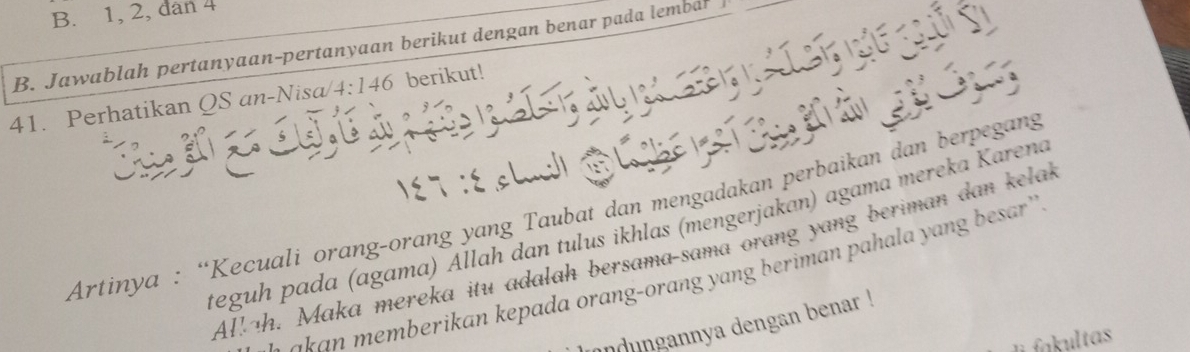 B. 1, 2, dan 4
B. Jawablah pertanyaan-pertanyaan berikut dengan benar pada lembar
41. Perhatikan QS an-Nisa/4:146 berikut!
اِلَّا الَّذِيْنَ تَابُوْا وَاَصْلَحُوْا وَاعْتَصَمُوْا بِاللّٰهِ وَاَخْلَصُوْا دِيْنَهُمْ لِلّٰهِ فَاُولٰۤىِٕكَ مَعَ الْمُؤْمِنِيْنَۗ
وَسَوْفَ يُؤْتِ اللّٰهُ الْمُؤْمِنِيْنَ اَجْرًا عَظِيْمًا ﴿١٤٦﴾ النساء ٤: ١٤٦
Artinya : “Kecuali orang-orang yang Taubat dan mengadakan perbaikan dan berpegang
teguh pada (agama) Allah dan tulus ikhlas (mengerjakan) agama mereka Karena
Allah. Maka mereka itu adalah bersama-sama orang yang beriman dan kelak
akan memberikan kepada orang-orang yang beriman pahala yang besar”.
dengan benar !
fakultas